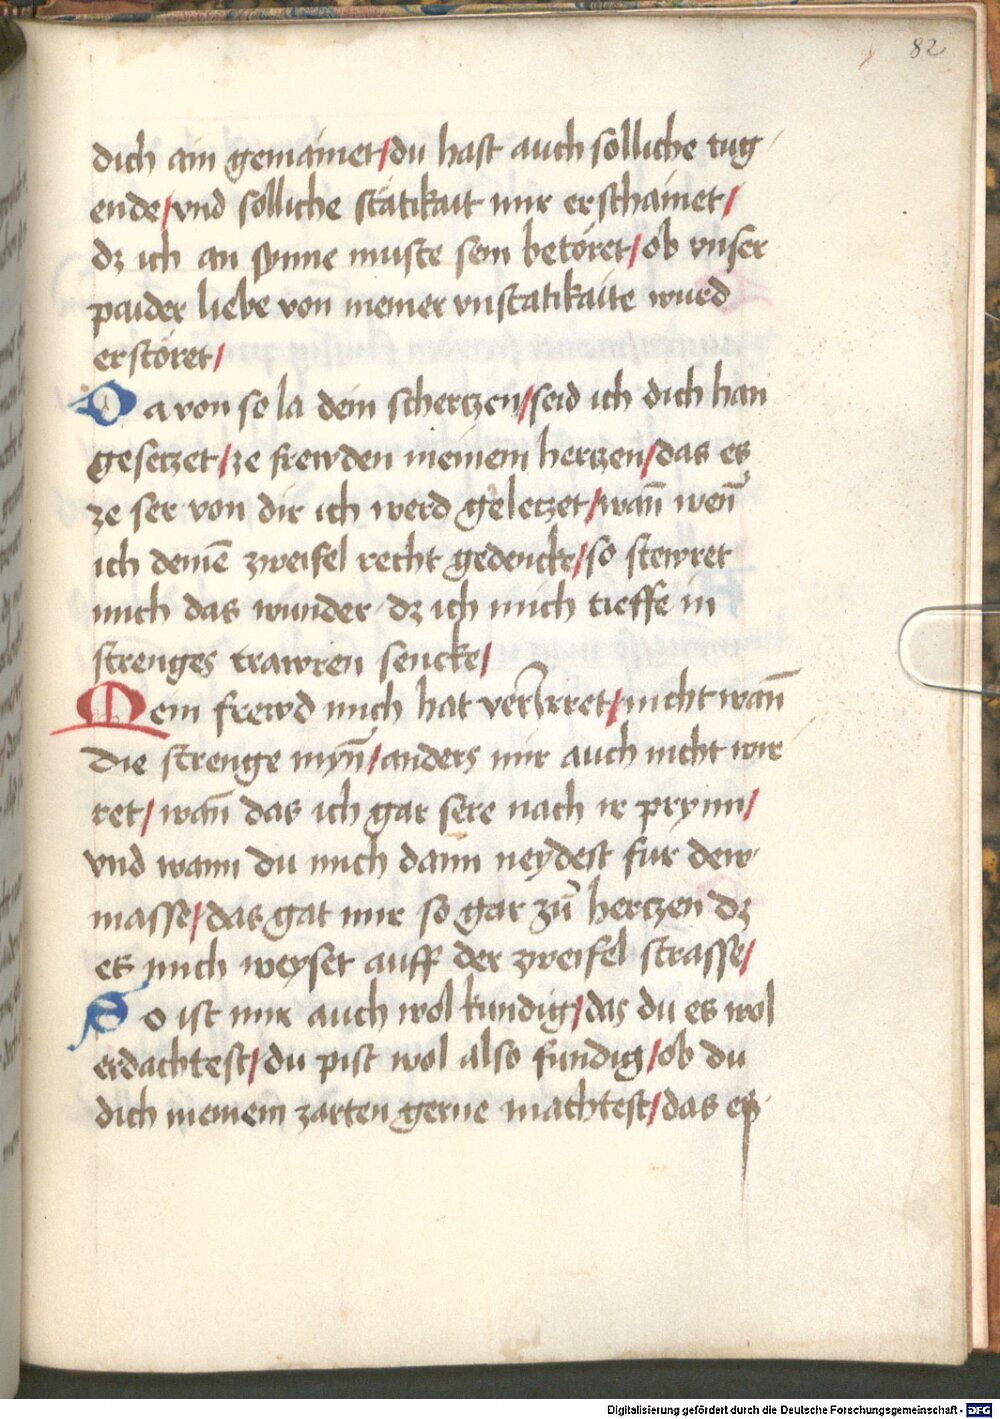 82
dich ain gemainet/du hast auch sölliche tug
ende/vnd sölliche stätikait mir erschainet/
dz ich an synne muste sein betöret/ob vnser
paider liebe von meiner vnstatikaite wurd
erstöret/
Da von so la dein schertzen/seid ich dich han
gesetzet/ze frewden meinem hertzen/das es
ze ser von dir ich werd geletzet/wañ weñ
ich deinē zweifel recht gedencke/so stewret
mich das wunder dz ich mich tieffe in
strenges trawren sencke/
Mein frewd mich hat verirret/nicht wañ
die strenge myñ/anders mir auch nicht wir
ret/wañ das ich gar sere nach ir prynn/
vnd wann du mich dann neydest fur dew
masse/das gat mir so gar zü hertzen dz
es mich weyset auff der zweifel strasse/
So ist mir auch wol kundig/das du es wol
erdachtest/du pist wol also fundig/ob du
dich meinem zarten gerne machtest/das es
Digitalisierung gefördert durch die Deutsche Forschungsgemeinschaft - DFG